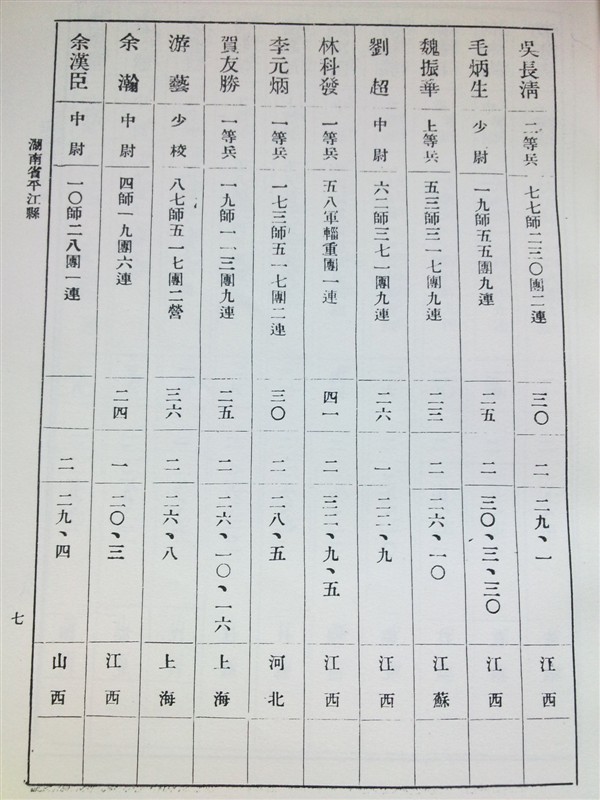 吳長淸 二等兵 七七師二三〇團二連 三〇 二 二九、一 江西
毛炳生 少尉 一九師五五團九連 二五 二 三〇、三、三〇 江西
魏振華 上等兵 五三師三一七團九連 二三 二 二六、一〇 江蘇
劉超 中尉 六二師三七一團九連 二六 一 二二、九 江西
林科發 一等兵 五八軍輜重團一連 四一 二 三二、九、五 江西
李元炳 一等兵 一七三師五一七團二連 三〇 二 二八、五 河北
賀友勝 一等兵 一九師一一三團九連 二五 二 二六、一〇、一六 上海
游藝 少校 八七師五一七團二營 三六 二 二六、八 上海
余瀚 中尉 四師一九團六連 二四 一 二〇、三 江西
余漢臣 中尉 一〇師二八團一連 二 二九、四 山西
湖南省平江縣
七